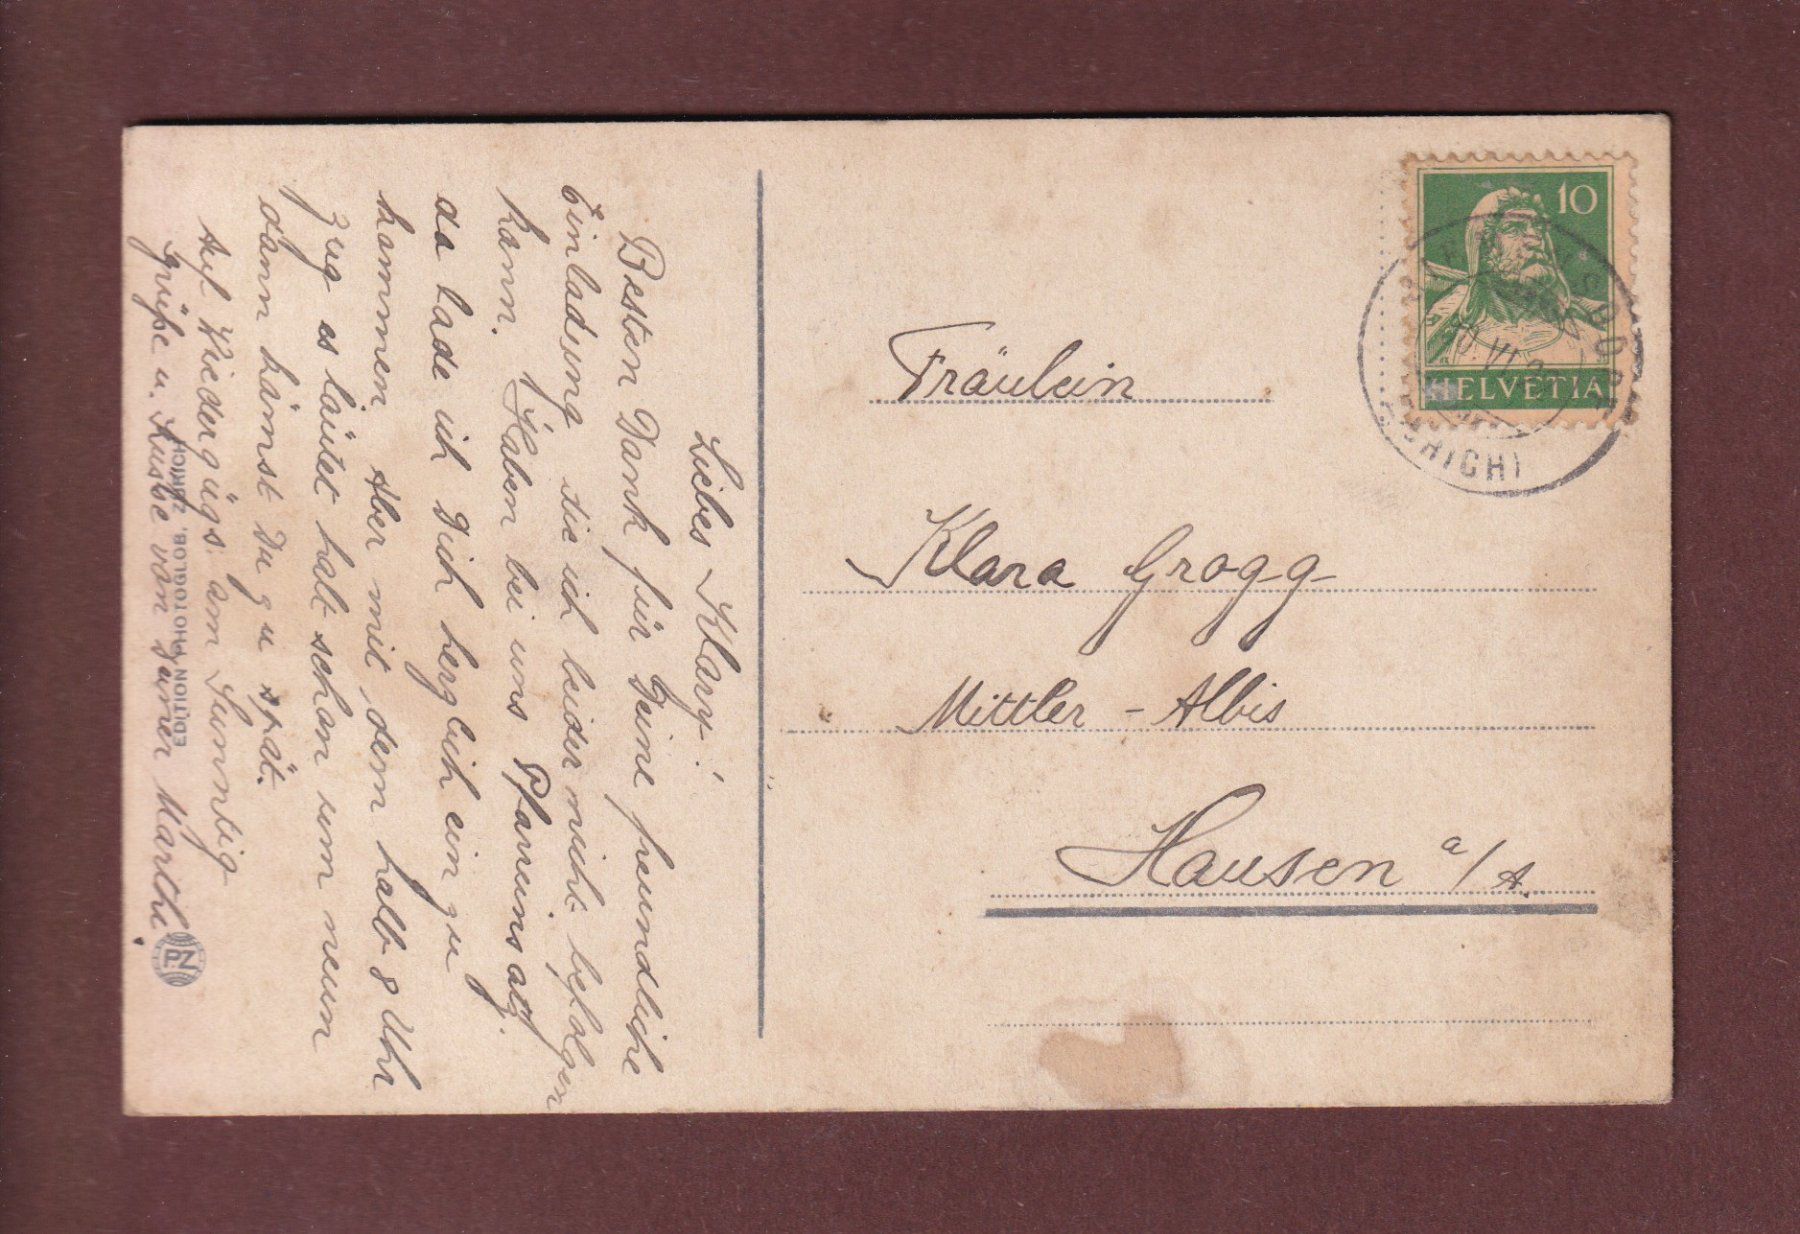 Liebes Klary!
Besten Dank für Deine freundliche
Einladung die ich leider nicht befolgen
kann. Haben bei uns Pfarreinsatz.
da lade ich Dich herzlich ein zu
kommen. Aber mit dem halb 8 Uhr
Zug es läutet halt schon um neun
dann kämst Du zu spät.
Auf Wiedergügs. am Sunntig
grüße u. Küsse von Deiner Marlihe
EDITION PHOTOGLOB. ZÜRICH
PZ
10
HELVETIA
VI
(ZÜRICH)
Fräulein
Klara Grogg
Mittler - Albis
Hausen a/A.